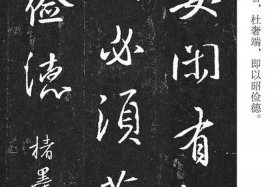 杜奢端，即以昭俭德。
閑有
必須
儉德
楮墨